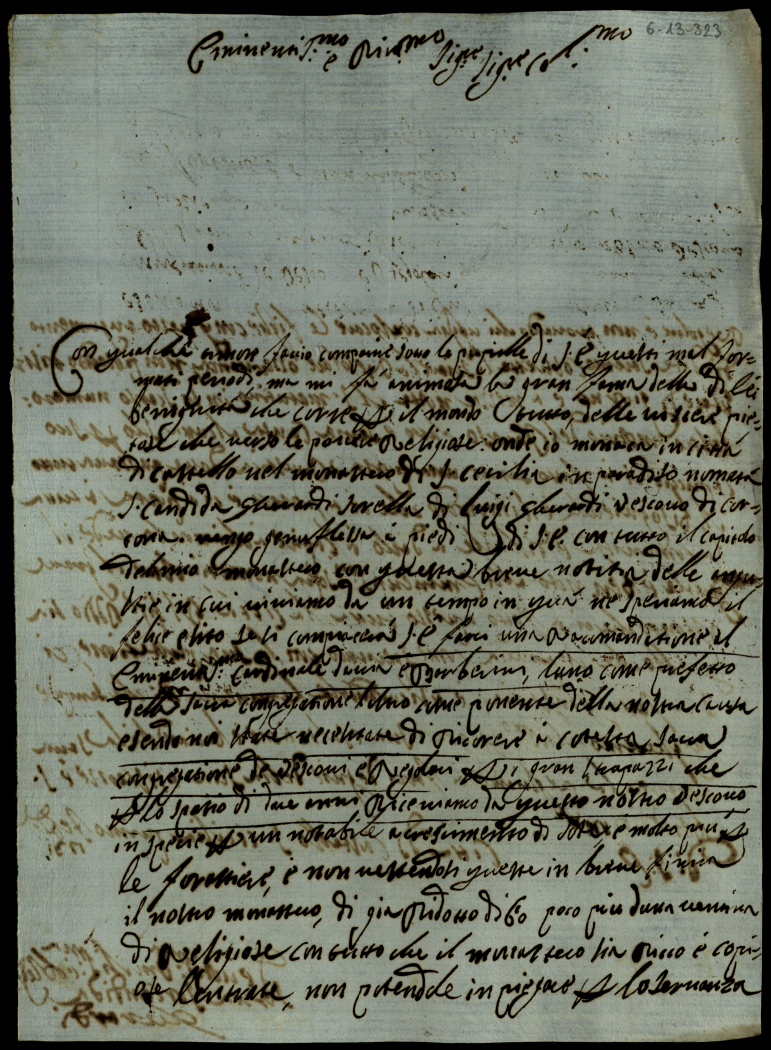 6-13-323
Eminentis.mo e Riu.mo Sig.re Sig.re Col.mo
Con qualche timore facio comparire sotto le pupille di S. E. questi mal for-
mati periodi, ma mi fa animata la gran fama della di lei
benignità che corre p il mondo tutto, delle viscere pie-
tose che verso le povere Religiose. onde io monaca in città
di castello nel monastero di S. Cecilia in paradiso nomata
S. candida gherardi sorella di luigi gherardi Vescovo di cor-
tona. vengo genuflessa a piedi di S. E. con tutto il capitolo
del mio monastero, con questa breve notitia delle angu-
stie in cui viviamo da un tempo in qua ne speriamo il
felice esito se si compiacerà S. E. farci una Racomandatione al
Eminenti.mo Cardinale e Barberini, luno come prefetto
della Sacra congregatione laltro come ponente della nostra causa
esendo noi state necesitate di Ricorere a cotesta Sacra
congregatione de Vescovi e Regolari p i gran strapazzi che
p lo spatio di due anni Riceviamo da questo nostro Vescovo
in specie p un notabile acrescimento di dote, e molto più p
le forestiere, e non vestendosi queste in breve finirà
il nostro monastero, di già Ridotto di 60 poco più duna ventina
di Religiose con tutto che il monastero sia Ricco e copi-
ose lentrate, non potendole inpiegare p loservanza